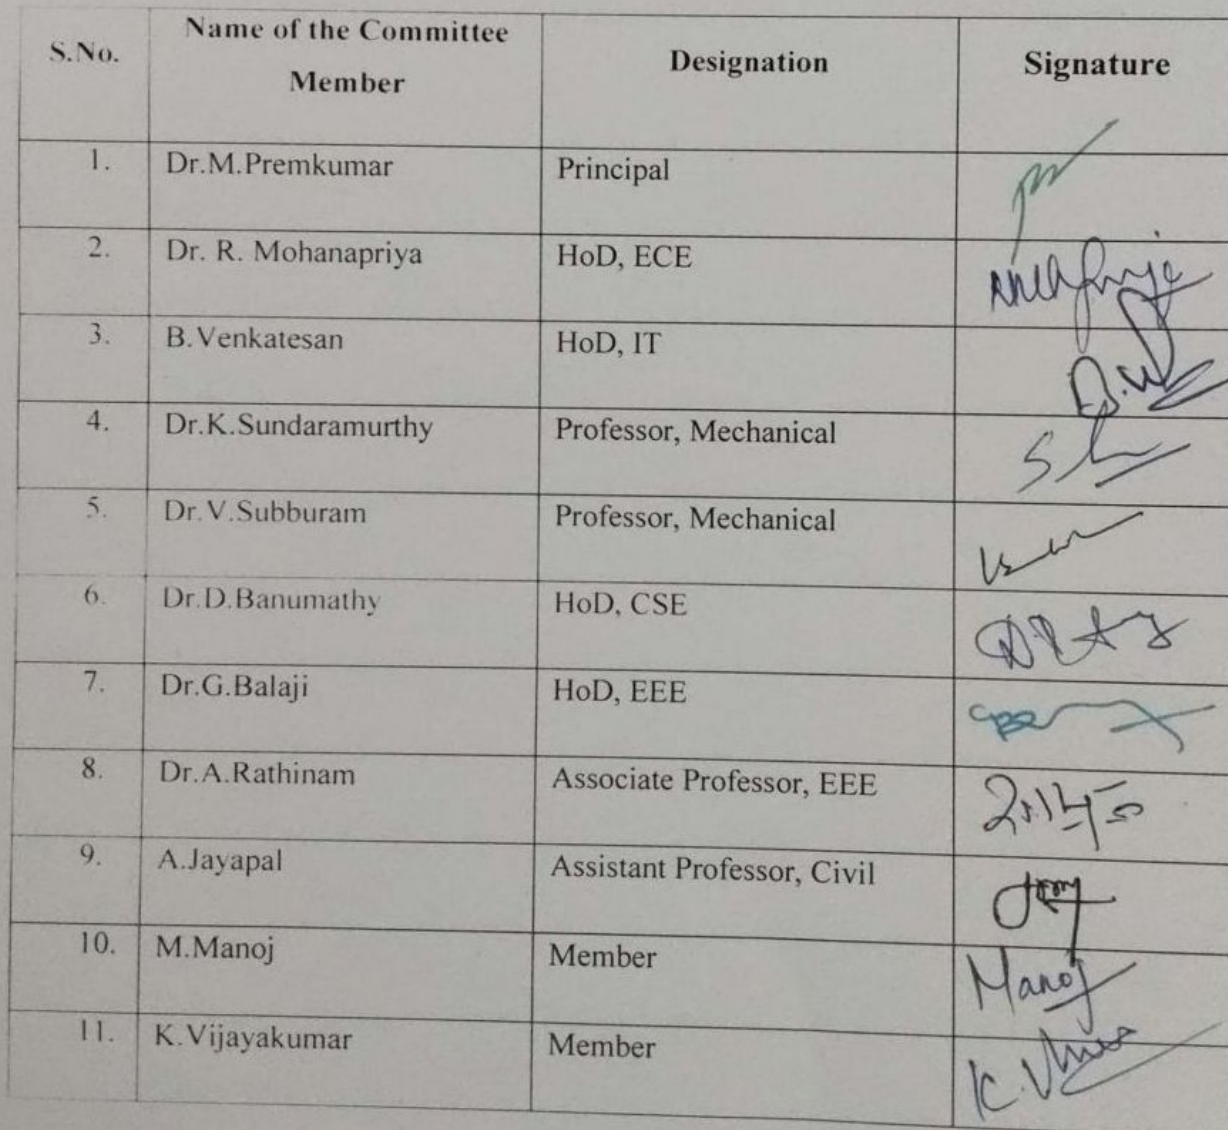 S.No. Name of the Committee Member Designation Signature
1. Dr.M.Premkumar Principal
2. Dr. R. Mohanapriya HoD, ECE
3. B.Venkatesan HoD, IT
4. Dr.K.Sundaramurthy Professor, Mechanical
5. Dr.V.Subburam Professor, Mechanical
6. Dr.D.Banumathy HoD, CSE
7. Dr.G.Balaji HoD, EEE
8. Dr.A.Rathinam Associate Professor, EEE
9. A.Jayapal Assistant Professor, Civil
10. M.Manoj Member Manoj
11. K.Vijayakumar Member